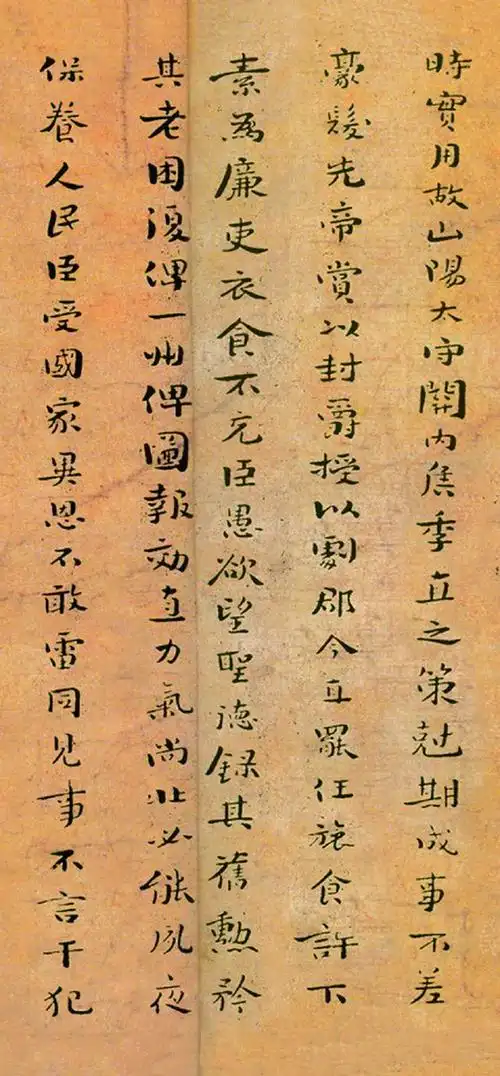 時實用故山陽太守關内侯季直之策尅期成事不差
豪髮先帝賞以封爵授以劇郡今直罷任旅食許下
素為廉吏衣食不充臣愚欲望聖德録其舊勳矜
其老困復俾一州俾圖報効直力氣尚壯必能夙夜
保養人民臣受國家異恩不敢雷同見事不言干犯